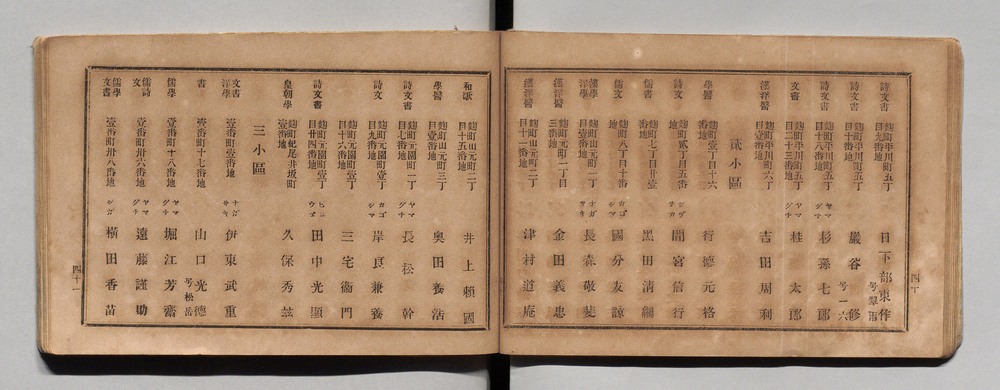 詩文書 麴町平川町五丁目七番地 日下部東作 号翠雨
詩文書 麴町平川町五丁目十番地 巖谷修 号一六
文 麴町平川町五丁目十八番地 ヤマグチ 杉孫七郎
文書 麴町平川町五丁目二十三番地 ヤマグチ 桂太郎
漢洋醫 麴町平川町六丁目 吉田周利
貳小區
學醫 麴町壹丁目十六番地 行德元格
詩文 麴町貳丁目五番地 シヅヲカ 間宮信行
儒書 麴町七丁目廿壹番地 黑田清綱
儒文 麴町八丁目十番地 カゴシマ 國分友諒
儒學洋學 麴町山元町一丁目壹番地 ナガサキ 長森敬斐
漢洋醫 麴町山元町一丁目三番地 金田義忠
漢洋醫 麴町山元町二丁目十一番地 津村道庵
四十
和歌 麴町山元町二丁目十五番地 井上賴國
學醫 麴町山元町三丁目壹番地 奥田養浩
詩文書 麴町元園町一丁目七番地 ヤマグチ 長松幹
詩文 麴町元園町壹丁目九番地 カゴシマ 岸良兼養
麴町元園町壹丁目十六番地 三宅衞門
詩文書 麴町元園町壹丁目廿四番地 ヒヨウゴ 田中光顯
皇朝學 麴町紀尾井坂町壹番地 久保秀玆
三小區
文書洋學 壹番町壹番地 ナガサキ 伊東武重
書 壹番町十七番地 山口光德 号松岳
儒學 壹番町十八番地 ヤマグチ 堀江芳齋
儒詩文 壹番町卅六番地 ヤマグチ 遠藤謹助
儒學文書 壹番町卅八番地 シガ 橫田香苗
四十一